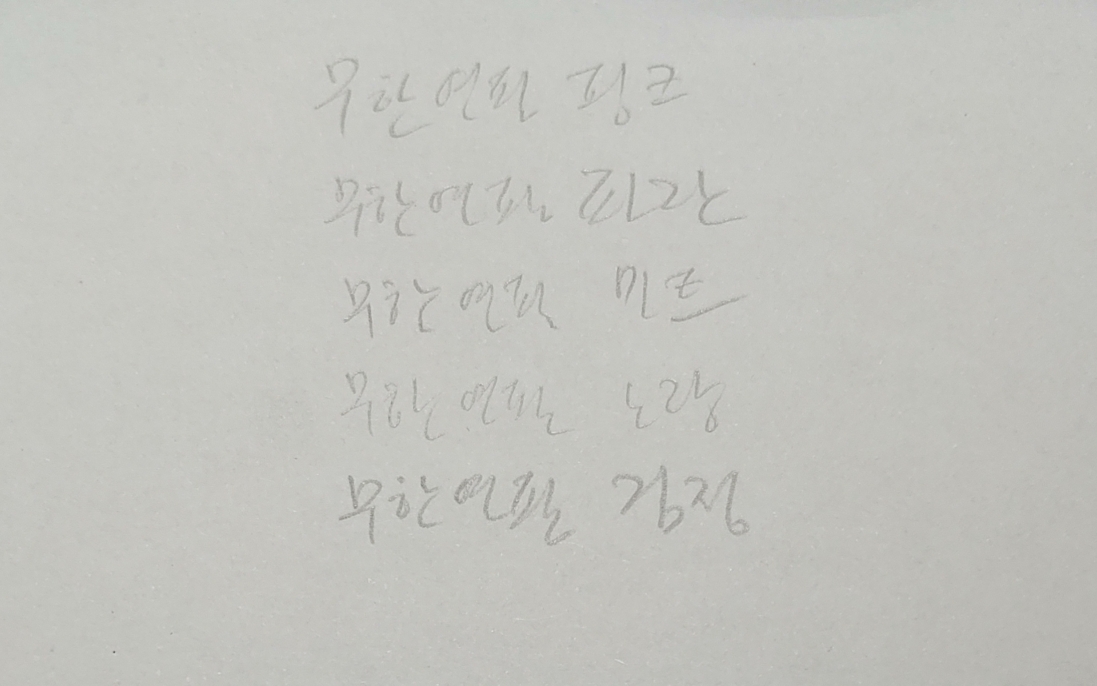 무한연필 핑크
무한연필 파란
무한연필 민트
무한연필 노랑
무한연필 검정